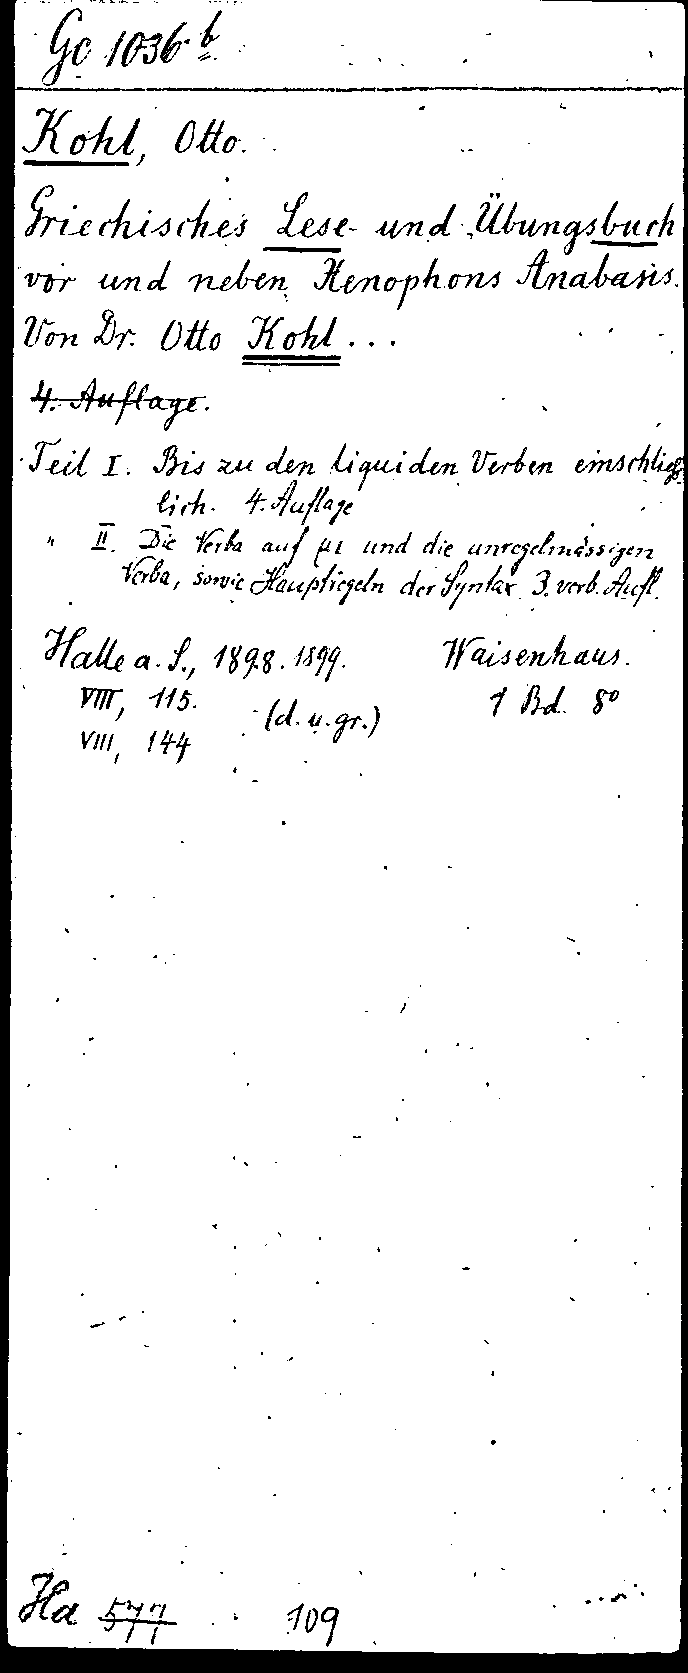 Gc 1036 b
Kohl, Otto.
Griechisches Lese- und Übungsbuch
vor und neben Xenophons Anabasis.
Von Dr. Otto Kohl...
4. Auflage.
Teil I. Bis zu den liquiden Verben einschließ
lich. 4. Auflage
" II. Die Verba auf μι und die unregelmässigen
Verba, sowie Hauptregeln der Syntax 3. verb. Aufl.
Halle a. S., 1898. 1899. Waisenhaus.
VIII, 115. 1 Bd. 8º
(d. u. gr.)
VIII, 144
Ha 577 109